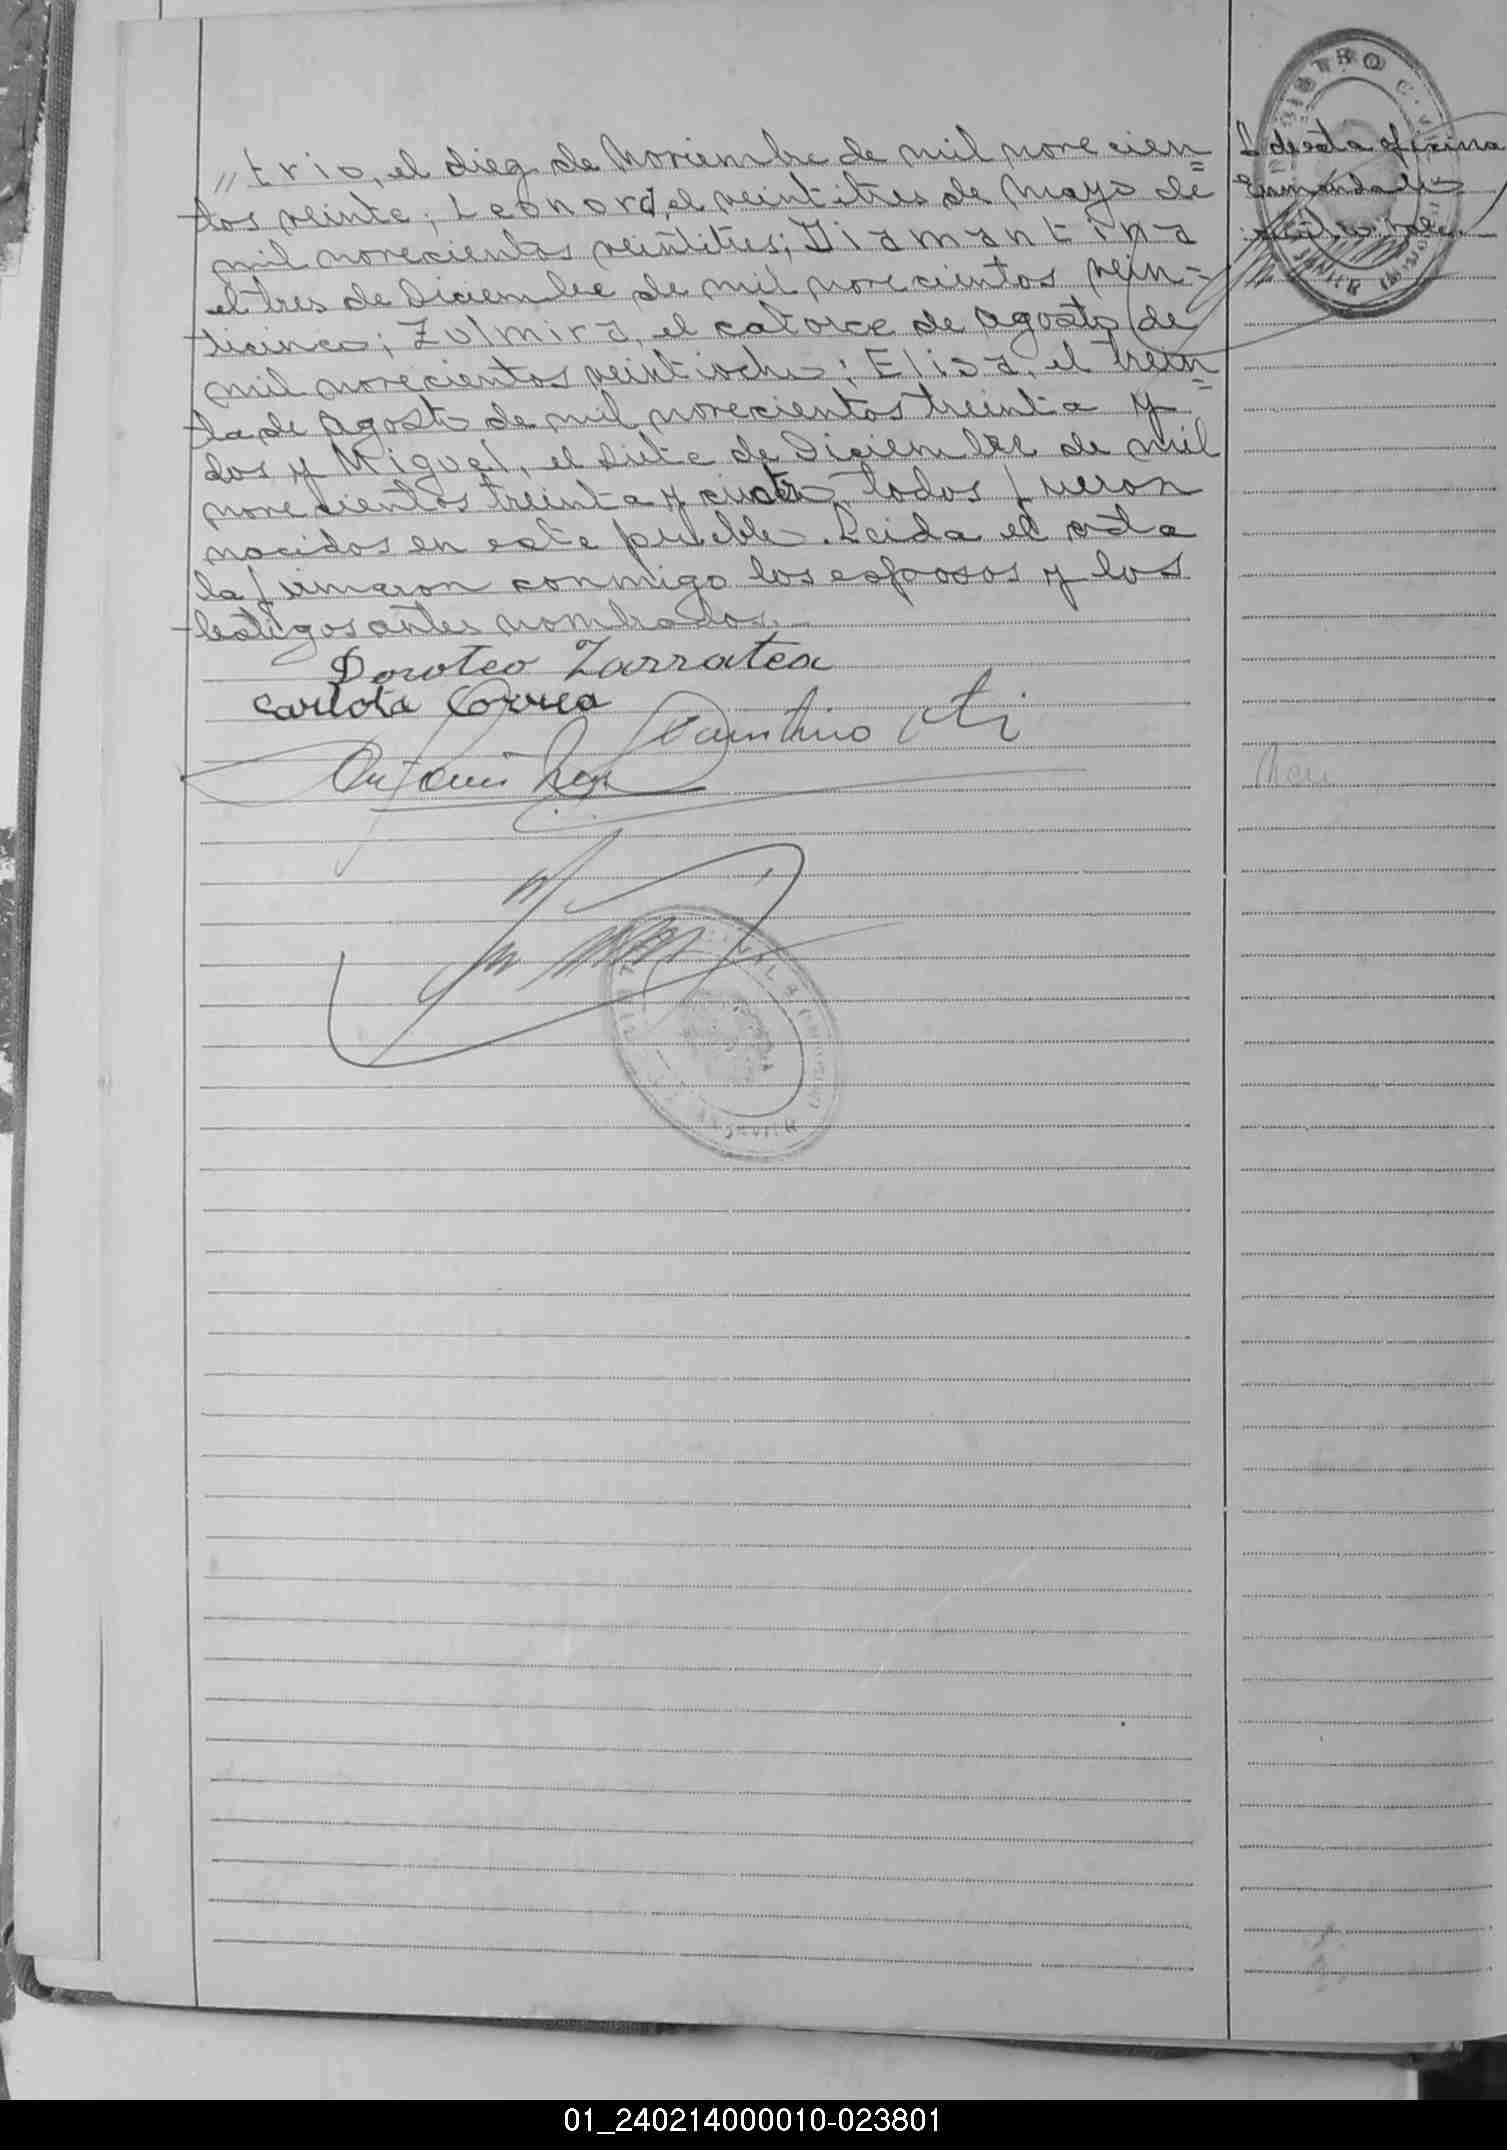 "trio, el diez de Noviembre de mil novecien=
tos veinte; Leonora, el veintitres de Mayo de
mil novecientos veintitres; Diamantina
el tres de Diciembre de mil novecientos vein=
ticinco; Zulmira, el catorce de Agosto de
mil novecientos veintiocho; Elisa, el trein=
ta de Agosto de mil novecientos treinta y
dos y Miguel, el siete de Diciembre de mil
novecientos treinta y cuatro, todos fueron
nacidos en este pueblo. Leida el acta
la firmaron conmigo los esposos y los
testigos antes nombrados.-
Doroteo Zarratea
Carlota Correa
Faustino
Antonio
de esta oficina
Enmendado
vale.
REGISTRO CIVIL
01_240214000010-023801